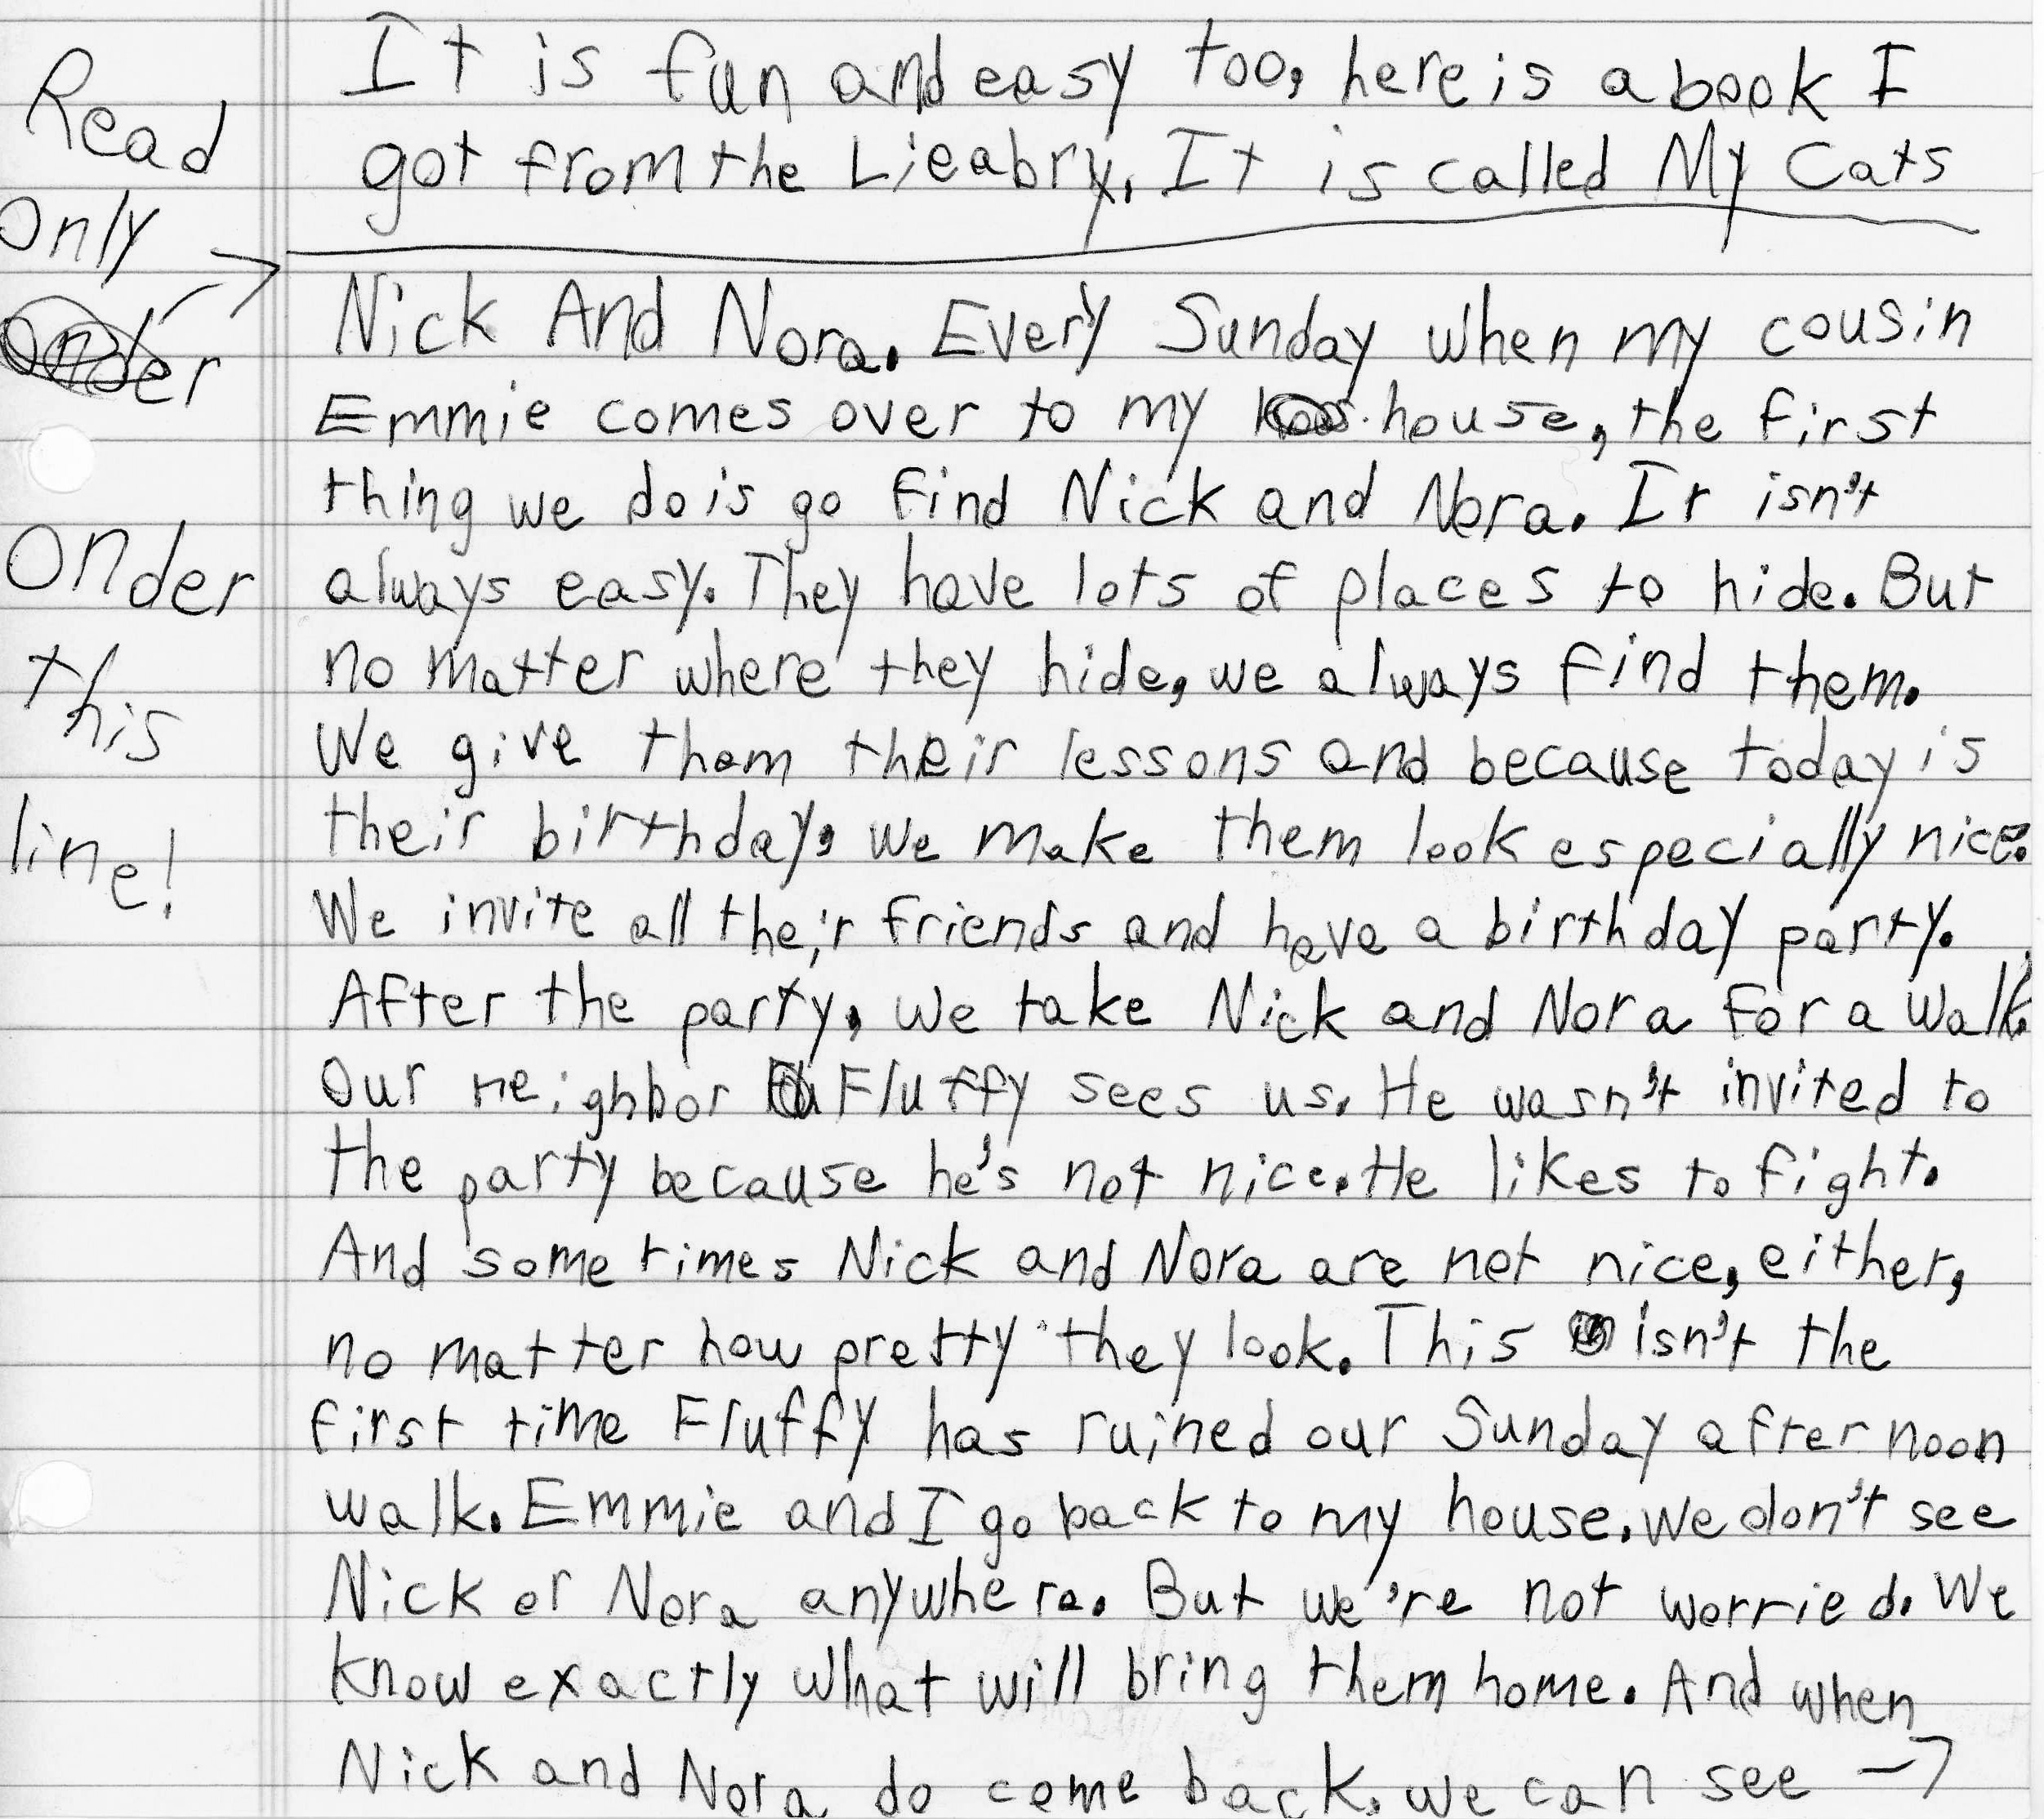 It is fun and easy too, here is a book I
got from the Lieabry. It is called My Cats
Nick And Nora. Every Sunday when my cousin
Emmie comes over to my house, the first
thing we do is go find Nick and Nora. It isn't
always easy. They have lots of places to hide. But
no matter where they hide, we always find them.
We give them their lessons and because today is
their birthday, we make them look especially nice.
We invite all their friends and have a birthday party.
After the party, we take Nick and Nora for a walk.
Our neighbor Fluffy sees us. He wasn't invited to
the party because he's not nice. He likes to fight.
And sometimes Nick and Nora are not nice, either,
no matter how pretty they look. This isn't the
first time Fluffy has ruined our Sunday afternoon
walk. Emmie and I go back to my house. We don't see
Nick or Nora anywhere. But we're not worried. We
know exactly what will bring them home. And when
Nick and Nora do come back, we can see →
Read
only
onder
this
line!